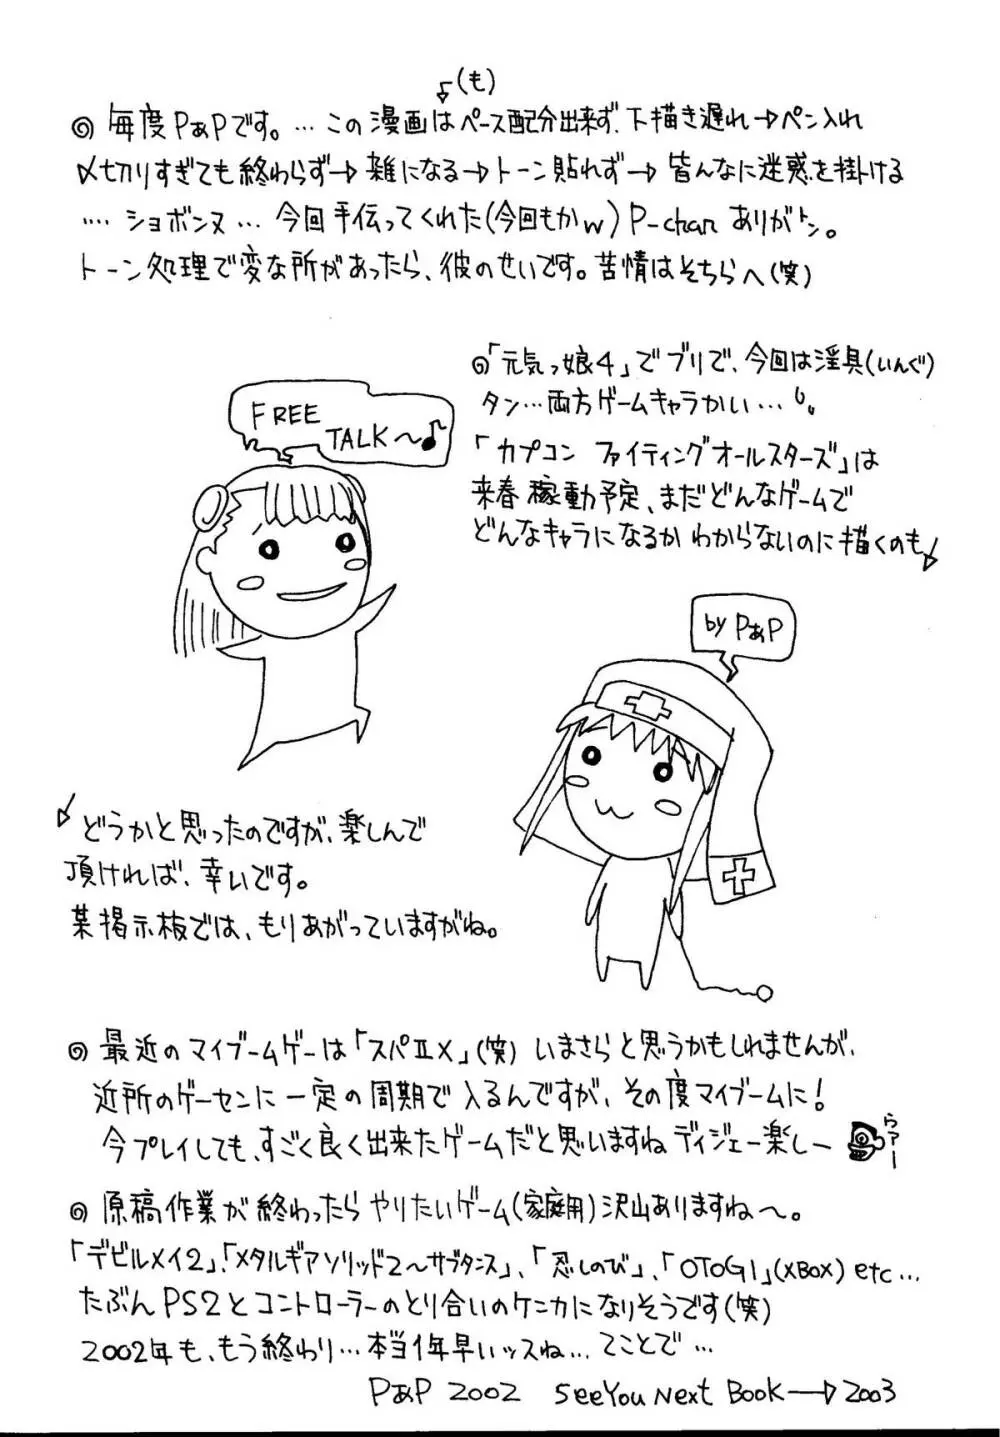 (も)
◎ 毎度PぁPです。… この漫画はペース配分出来ず、下描き遅れ→ペン入れ
〆切りすぎても終わらず→雑になる→トーン貼れず→皆んなに迷惑を掛ける
…. ショボンヌ … 今回手伝ってくれた(今回もかw) P-chan ありがトン。
トーン処理で変な所があったら、彼のせいです。苦情はそちらへ(笑)
◎「元気っ娘4」でブリで、今回は淫具(いんぐ)
タン… 両方ゲームキャラかい…
「カプコン ファイティングオールスターズ」は
来春稼動予定、まだどんなゲームで
どんなキャラになるかわからないのに描くのも
FREE
TALK〜♪
by PぁP
どうかと思ったのですが、楽しんで
頂ければ、幸いです。
某掲示板では、もりあがっていますがね。
◎ 最近のマイブームゲーは「スパⅡX」(笑) いまさらと思うかもしれませんが、
近所のゲーセンに一定の周期で入るんですが、その度マイブームに!
今プレイしても、すごく良く出来たゲームだと思いますね ディジェー楽しー
らァー
◎ 原稿作業が終わったらやりたいゲーム(家庭用)沢山ありますね〜。
「デビルメイ2」、「メタルギアソリッド2〜サブタンス」、「忍しのび」、「OTOGI」(XBOX) etc…
たぶんPS2とコントローラーのとり合いのケンカになりそうです(笑)
2002年も、もう終わり… 本当1年早いッスね… てことで…
PぁP 2002 See You Next Book→2003